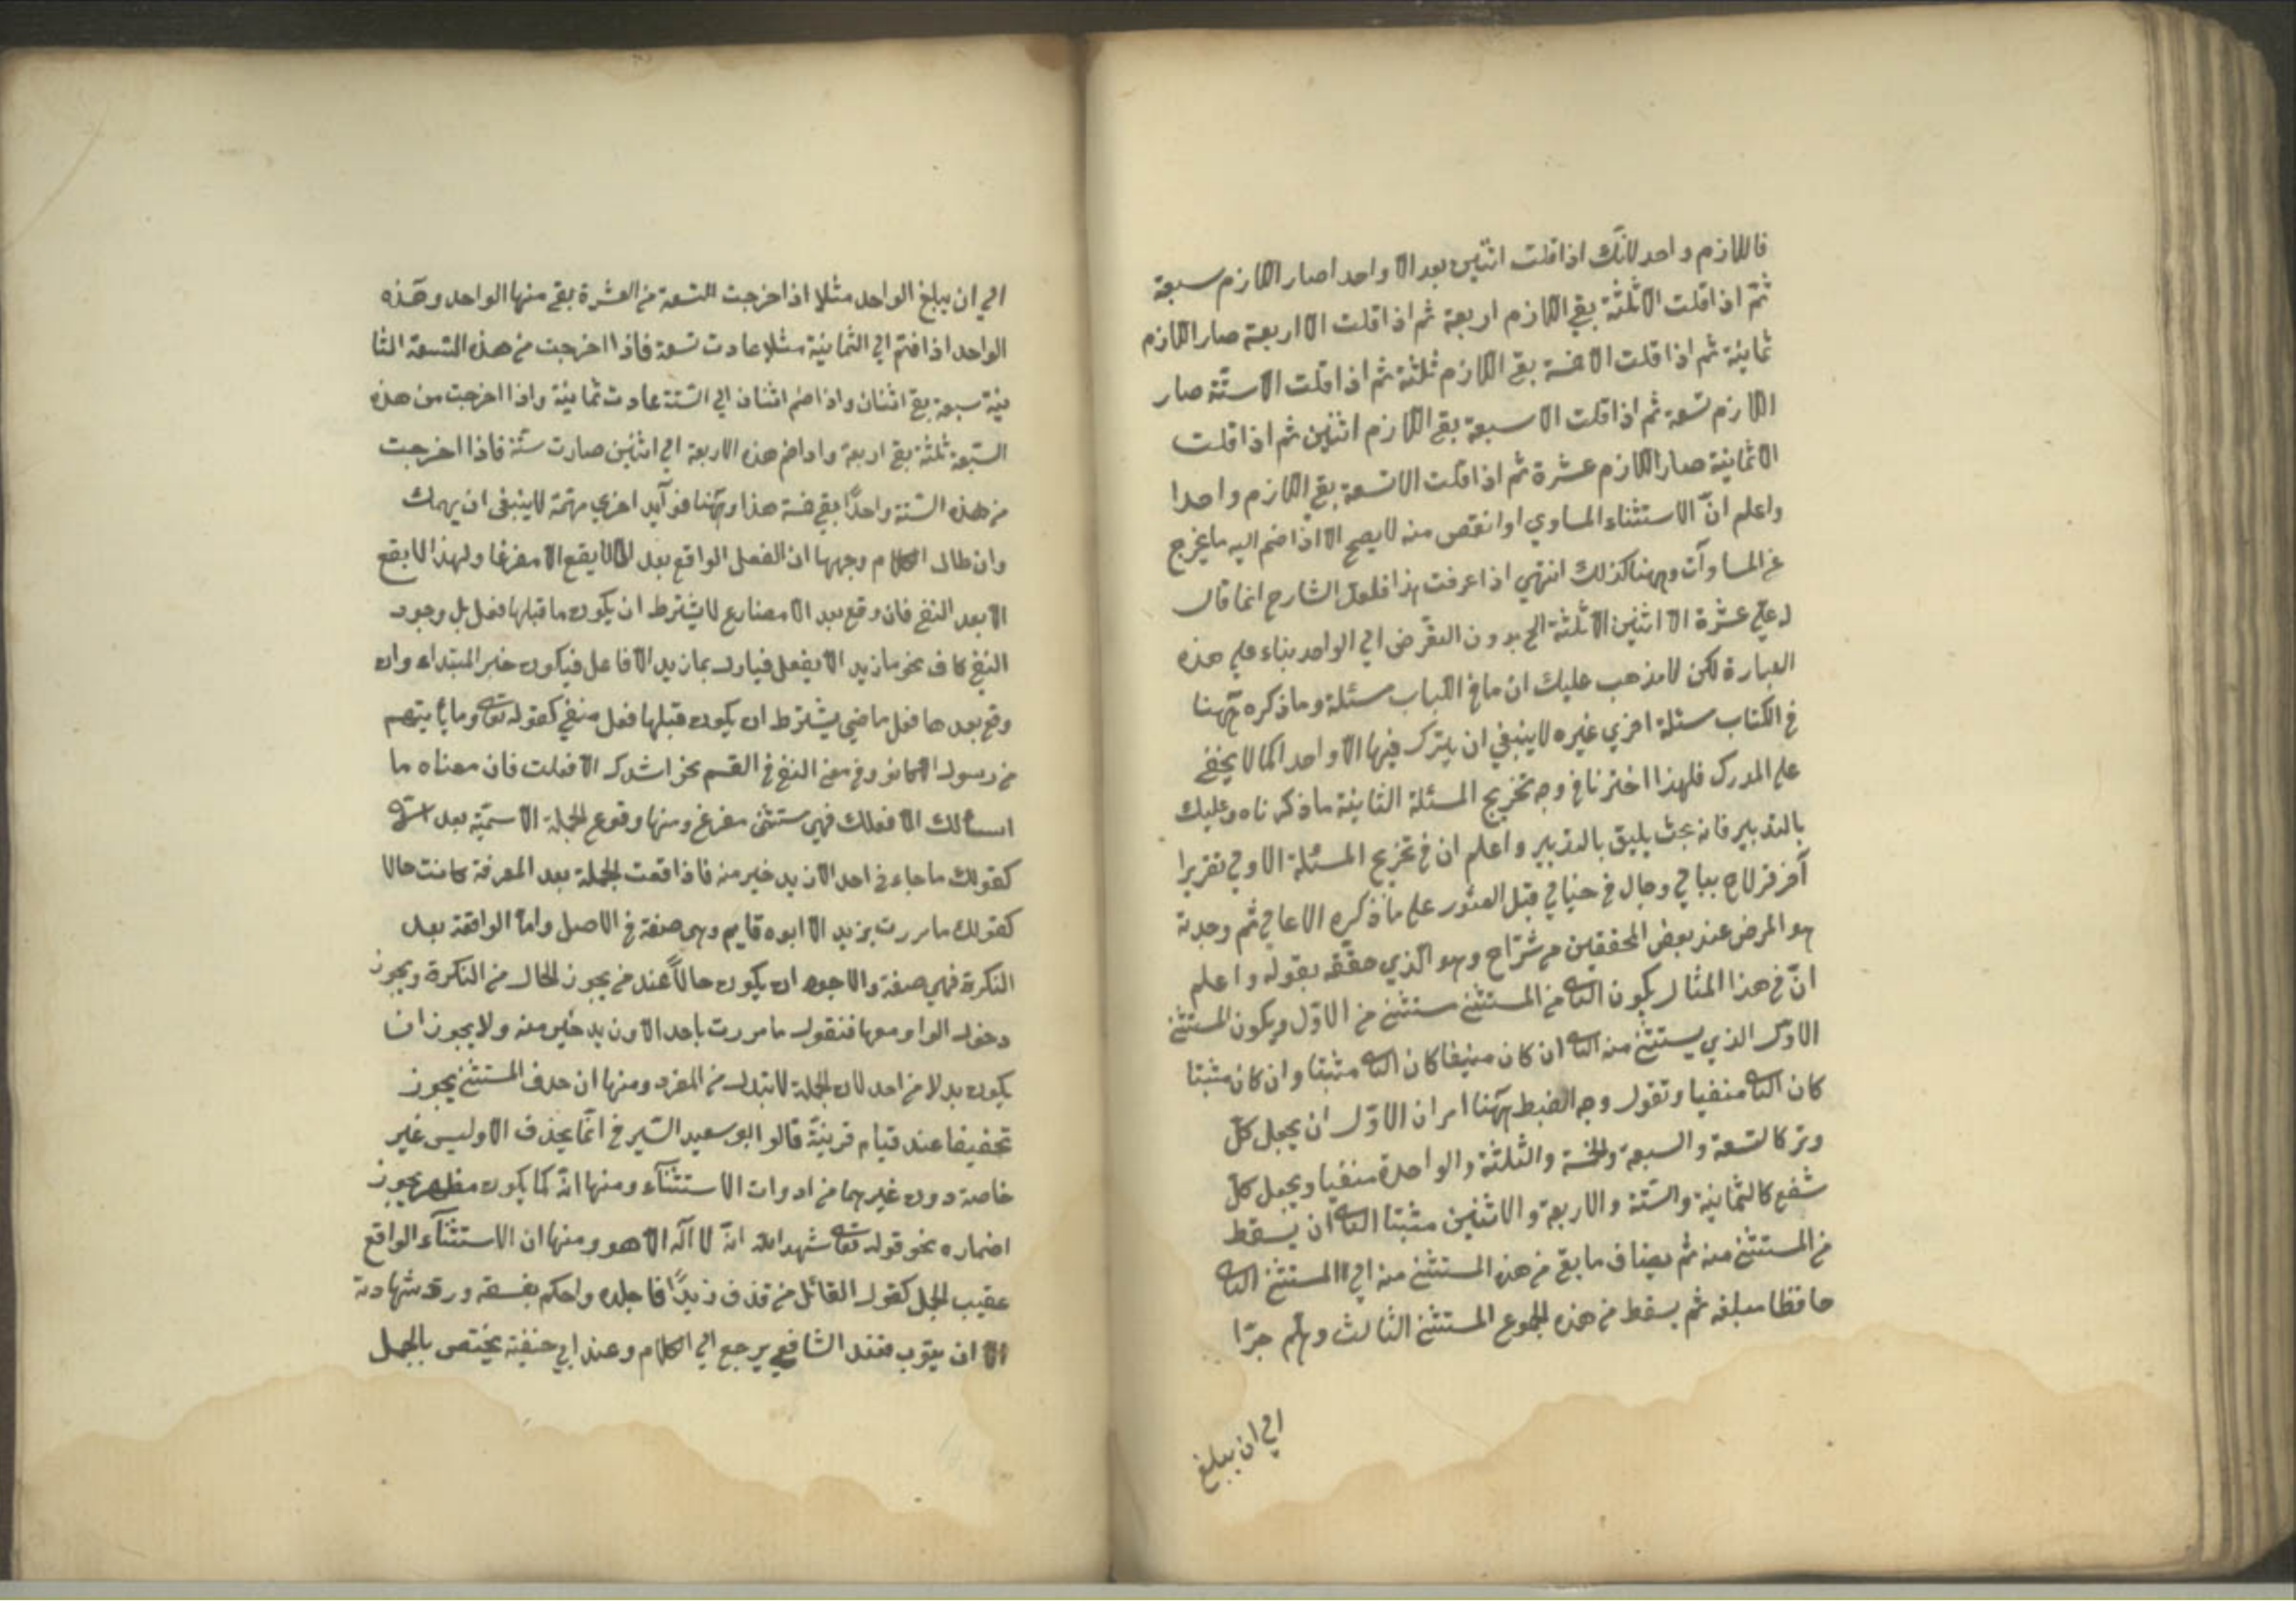 فاللازم واحد لانك اذا قلت اثنين بعد الا واحدا صار اللازم سبعة
ثم اذا قلت الا ثلثة بقي اللازم اربعة ثم اذا قلت الا اربعة صار اللازم
ثمانية ثم اذا قلت الا خمسة بقي اللازم ثلثة ثم اذا قلت الا ستة صار
اللازم تسعة ثم اذا قلت الا سبعة بقي اللازم اثنين ثم اذا قلت
الا ثمانية صار اللازم عشرة ثم اذا قلت الا تسعة بقي اللازم واحدا
واعلم انّ الاستثناء المساوي او انقص منه لا يصح الا اذا ضم اليه ما يخرج
عن المساوآت وههنا كذلك انتهي اذا عرفت هذا فلعل الشارح انما قال
له علي عشرة الا اثنين الا ثلثة الخ بدون التعرض الي الواحد بناء علي هذه
العبارة لكن لا يذهب عليك ان ما في اللباب مسئلة وما ذكره ههنا
في الكتاب مسئلة اخري غيره لا ينبغي ان يترك فيها الا واحدا كما لا يخفي
علي المدرك فلهذا اخترنا في وجه تخريج المسئلة الثانية ما ذكرناه وعليك
بالتدبير فانه بحث يليق بالتدبير واعلم ان في تخريج المسئلة الاولي تقريرا
آخر قد لاح ببالي وجال في خيالي قبل العثور علي ما ذكره الاعالي ثم وجدته
هو المرض عند بعض المحققين من شراح وهو الذي حققه بقوله واعلم
انّ في هذا المثال يكون الثاني من المستثني مستثني من الاوّل ويكون المستثني
الاوّل الذي يستثني منه الثاني ان كان منيفا كان الثاني مثبتا وان كان مثبتا
كان الثاني منفيا وتقول وجه الضبط ههنا امران الاوّل ان يجعل كلّ
وتر كالتسعة والسبعة والخمسة والثلثة والواحدة منفيا ويجعل كلّ
شفع كالثمانية والستة والاربعة والاثنين مثبتا الثاني ان يسقط
من المستثني منه ثم يضاف ما بقي من هذه المستثني منه الي المستثني الثاني
حافظا مبلغه ثم يسقط من هذه المجموع المستثني الثالث وهلم جرّا
الي ان يبلغ
الي ان يبلغ الواحد مثلا اذا اخرجت التسعة من العشرة بقي منها الواحد وهذه
الواحد اذا ضم الي الثمانية مثلا عادت تسعة فاذا اخرجت من هذه التسعة الثا
نية سبعة بقي اثنان واذا ضم اثنان الي الستة عادت ثمانية واذا اخرجت من هذه
السّبعة ثلثة بقي اربعة واذا ضم هذه الاربعة الي اثنين صارت ستّة فاذا اخرجت
من هذه الستة واحدًا بقي خمسة هذا وههنا فوآيد اخري مهمّة لا ينبغي ان يهملك
وان طال الكلام وجهها ان الفعل الواقع بعد الا لا يقع الا مفرغا ولهذا لا يقع
الا بعد النفي فان وقع بعد الا مضارع لا يشترط ان يكون ما قبلها فعل بل وجود
النفي كاف نحو ما زيد الا يفعل فيأول بما زيد الا فاعل فيكون خبر المبتداء وان
وقع بعدها فعل ماضي يشترط ان يكون قبلها فعل منفي كقوله تعالي وما يأتيهم
من رسول الا كانوا وفي معني النفي في القسم نحو انشدك الا فعلت فان معناه ما
اسألك الا فعلك فهي مستثني مفرغ ومنها وقوع الجملة الاسمية بعد
كقولك ما جاءني احد الا زيد خير منه فاذا وقعت الجملة بعد المعرفة كانت حالا
كقولك ما مررت بزيد الا ابوه قايم وهي صفة في الاصل وامّا الواقعة بعد
النكرة فهي صفة والاجود ان يكون حالاً عند من يجوز الحال من النكرة ويجوز
دخول الواو معها فنقول ما مررت باحد الا وزيد خير منه ولا يجوز ان
يكون بدلا من احد لان الجملة لا تبدل من المفرد ومنها ان حذف المستثني يجوز
تخفيفا عند قيام قرينة قالو ابو سعيد السّيرفي انّما يحذف الا وليس غير
خاصة دون غيرهما من ادوات الاستثنآء ومنها انّه كما يكون مظهر يجوز
اضماره نحو قوله تعالي شهد الله انّه لا اله الا هو ومنها ان الاستثنآء الواقع
عقيب الجمل كقول القائل من قذف زيدًا فاجلده واحكم بفسقه ورد شهادته
الا ان يتوب فعند الشافعي يرجع الي الكلام وعند ابي حنيفة يختص بالجمل